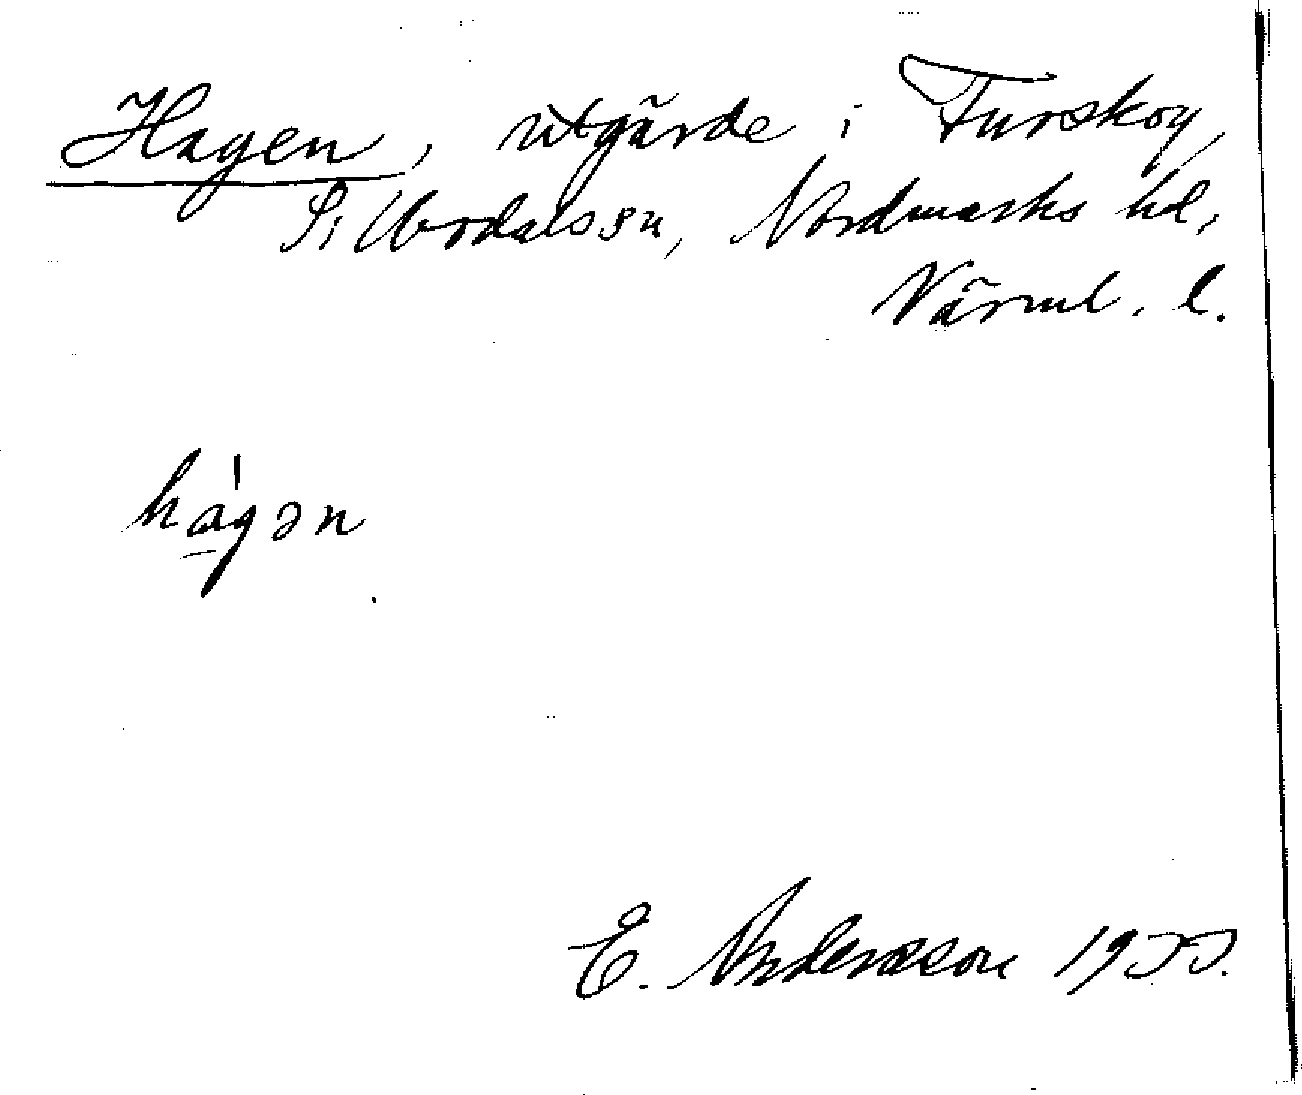 Hagen, utgärde i Furskog,
Sillbodals sn, Nordmarks hd,
Värml. l.
hàgən
E. Andersson 1933.